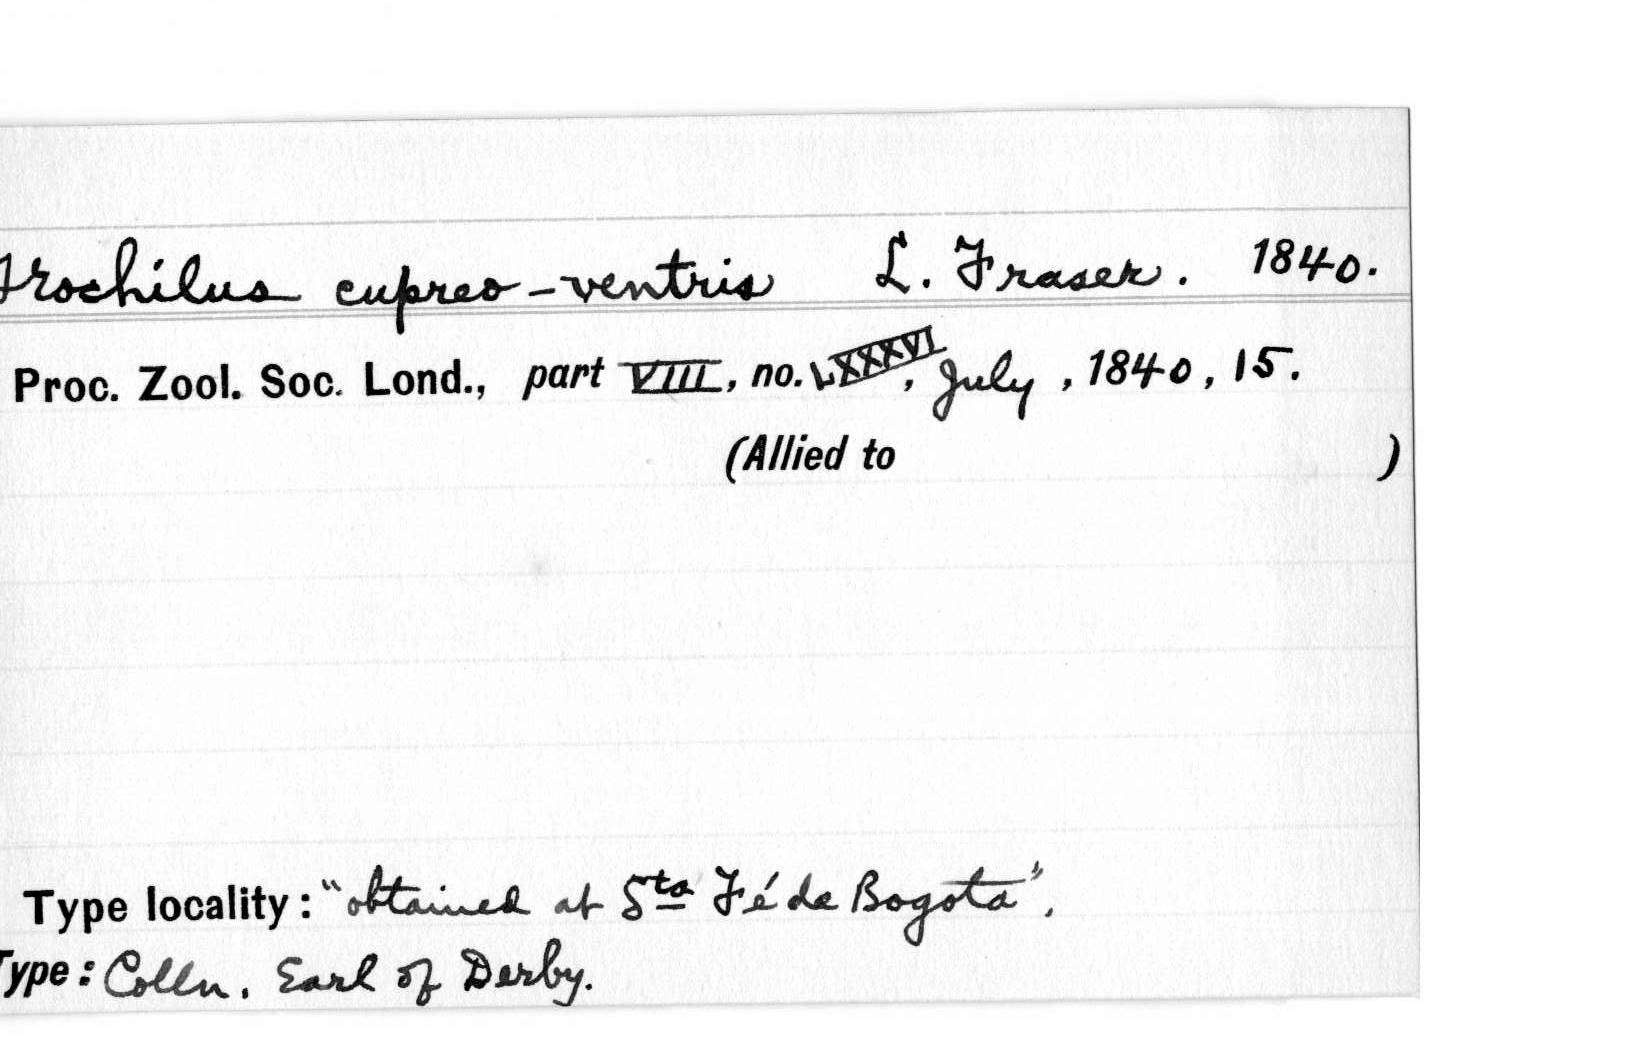 Trochilus cupreo-ventris L. Fraser. 1840.
Proc. Zool. Soc. Lond., part VIII, no. LXXXVI, July, 1840, 15.
(Allied to )
Type locality: "obtained at Sta Fé de Bogota",
Type: Colln. Earl of Derby.